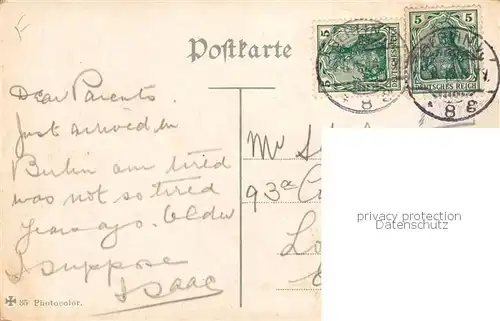 Postkarte
5 DEUTSCHES REICH
5 DEUTSCHES REICH
BERLIN
8 g
8 g
Dear Parents.
Just arrived in
Berlin am tired
was not so tired
years ago. Older
I suppose
Isaac
Mr S
93a C
Lo
privacy protection
Datenschutz
85 Photocolor.